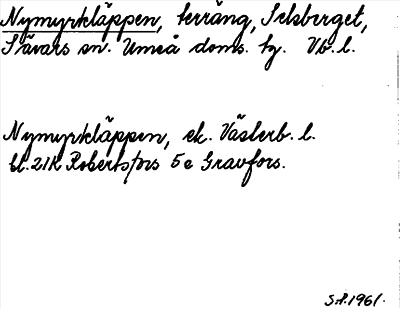 Nymyrkläppen, terräng, Selsberget,
Sävars sn. Umeå doms. hg. Vb. l.
Nymyrkläppen, ek. Västerb. l.
bl. 21K Robertsfors 5e Gravfors.
S.P. 1961.